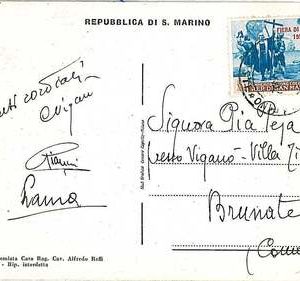 REPUBBLICA DI S. MARINO
FIERA DI
cordiali
Vigan
Gianni
Signora Pia
presso Viganò - Villa
Brunate
(Como
Premiata Casa Rag. Cav. Alfredo Reffi
Rip. interdetta